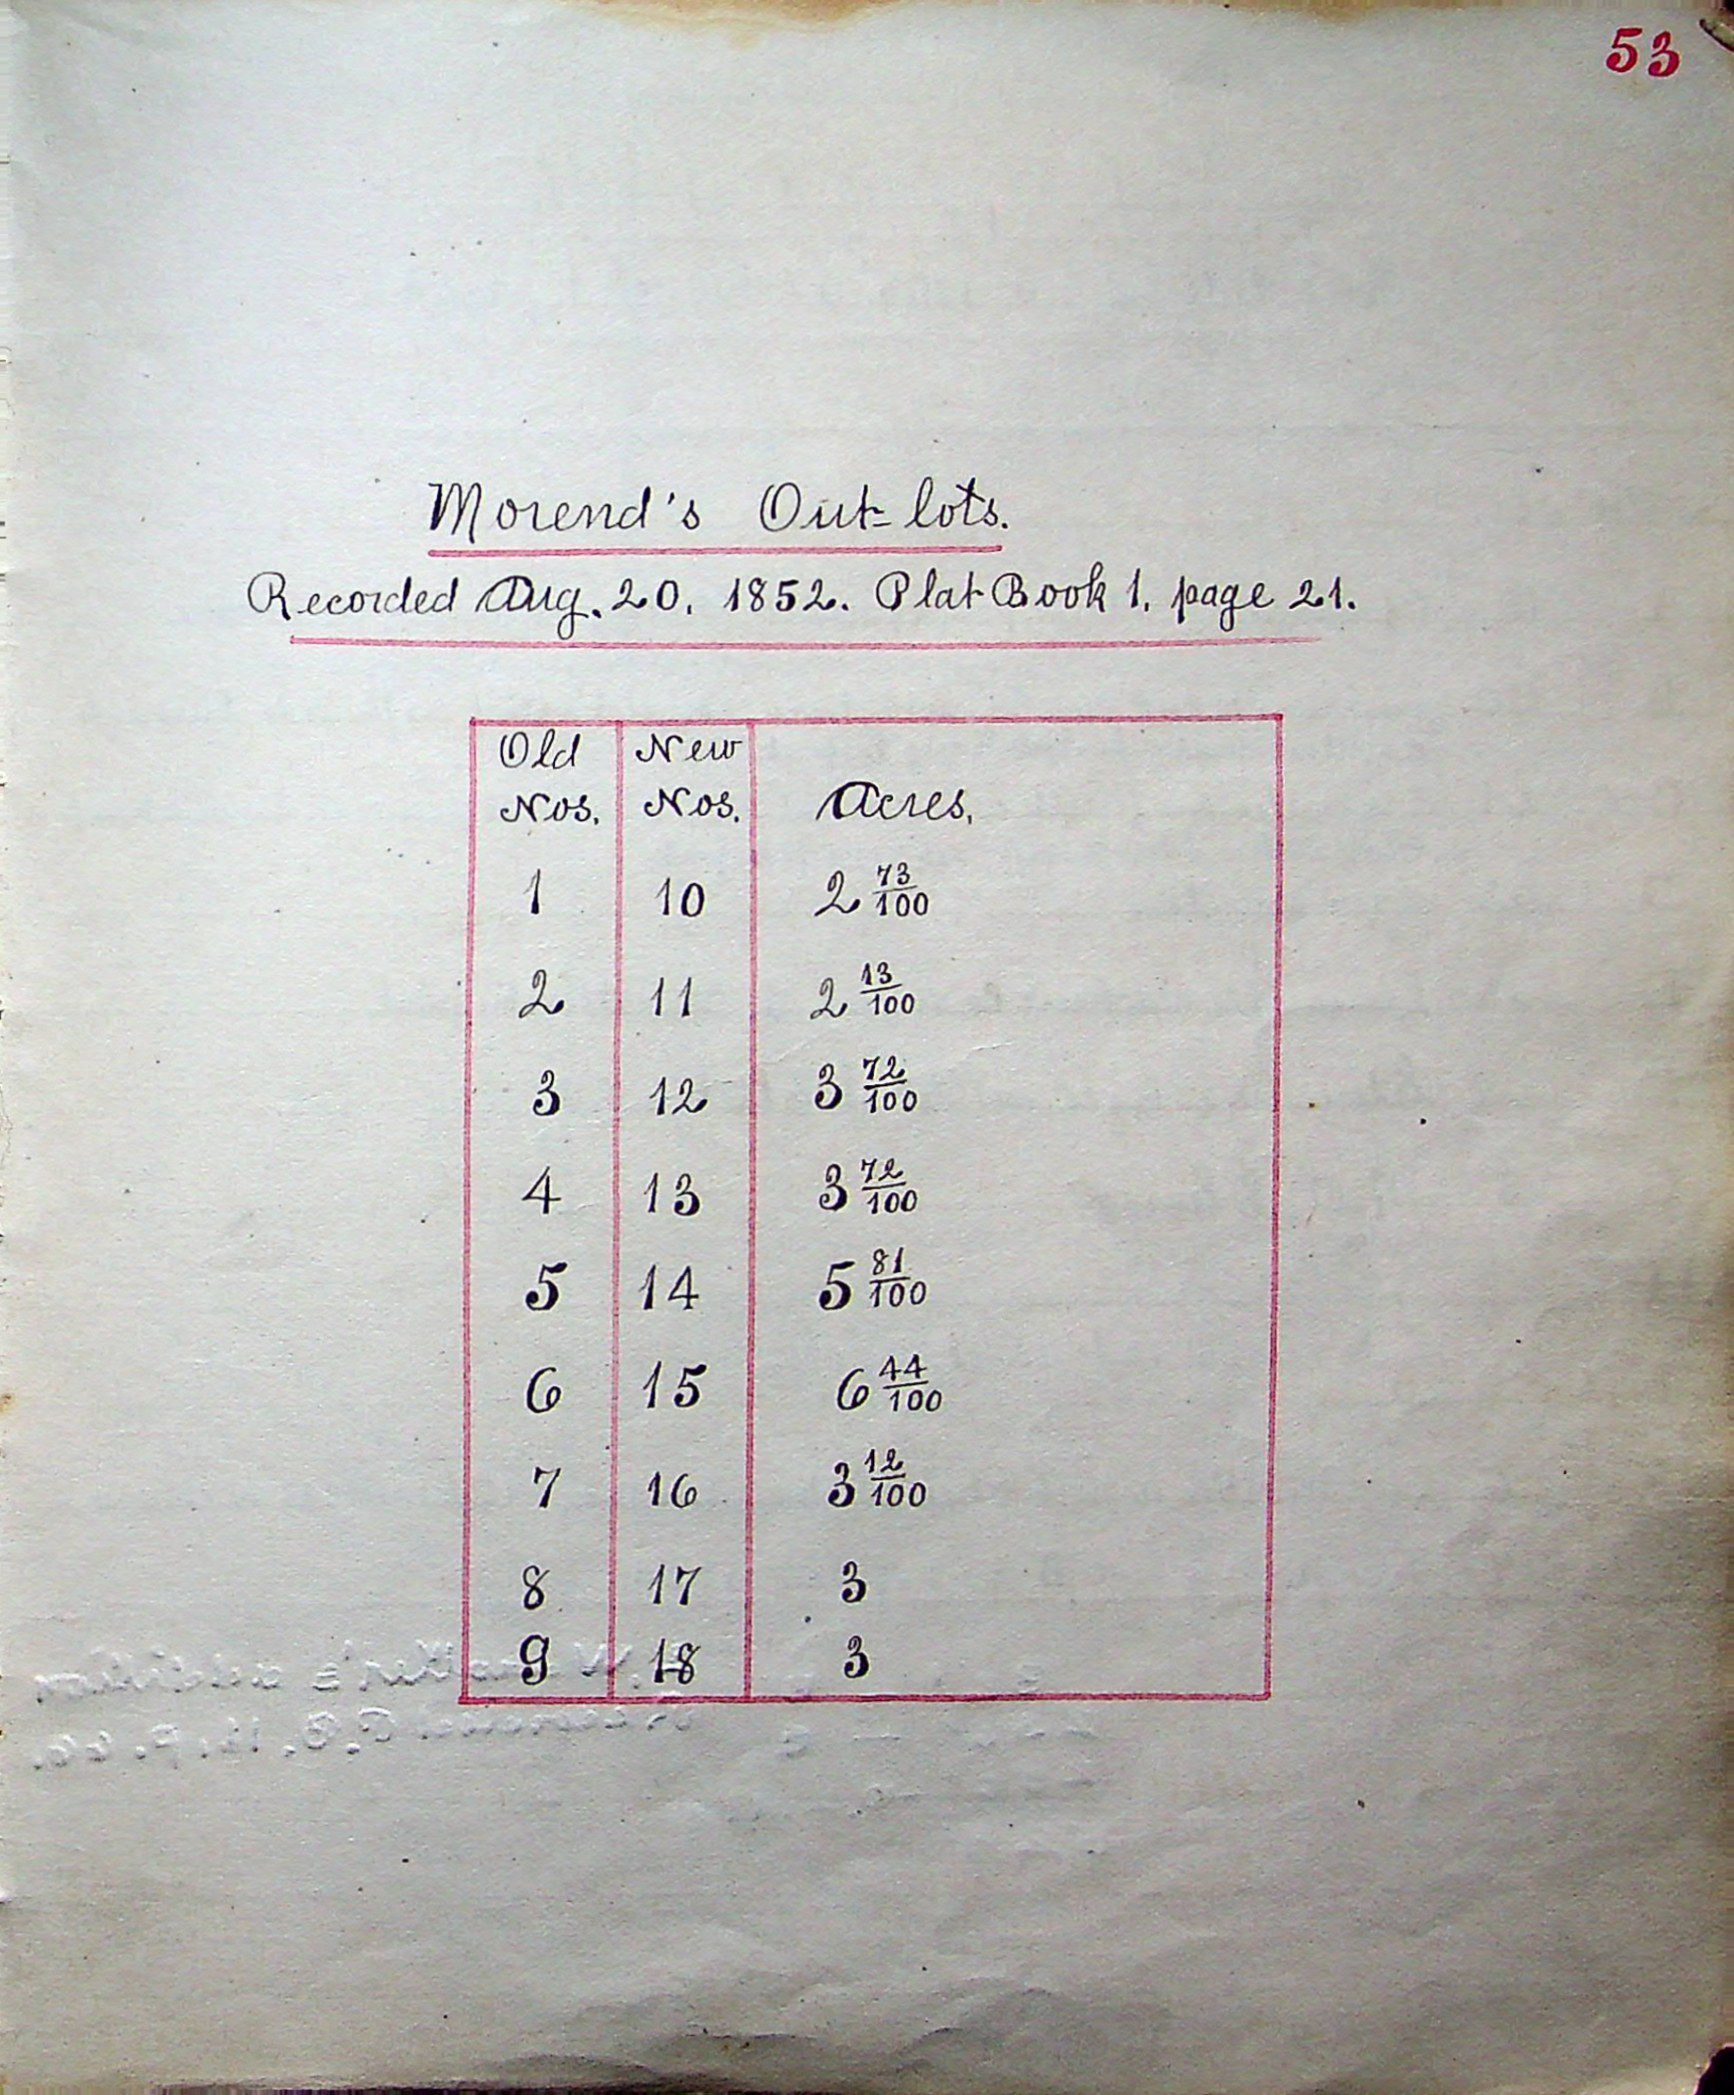 53
Morend's Out-lots.
Recorded Aug. 20, 1852. Plat Book 1, page 21.
Old New
Nos. Nos. Acres.
1 10 2 73/100
2 11 2 13/100
3 12 3 72/100
4 13 3 72/100
5 14 5 81/100
6 15 6 44/100
7 16 3 12/100
8 17 3
9 18 3